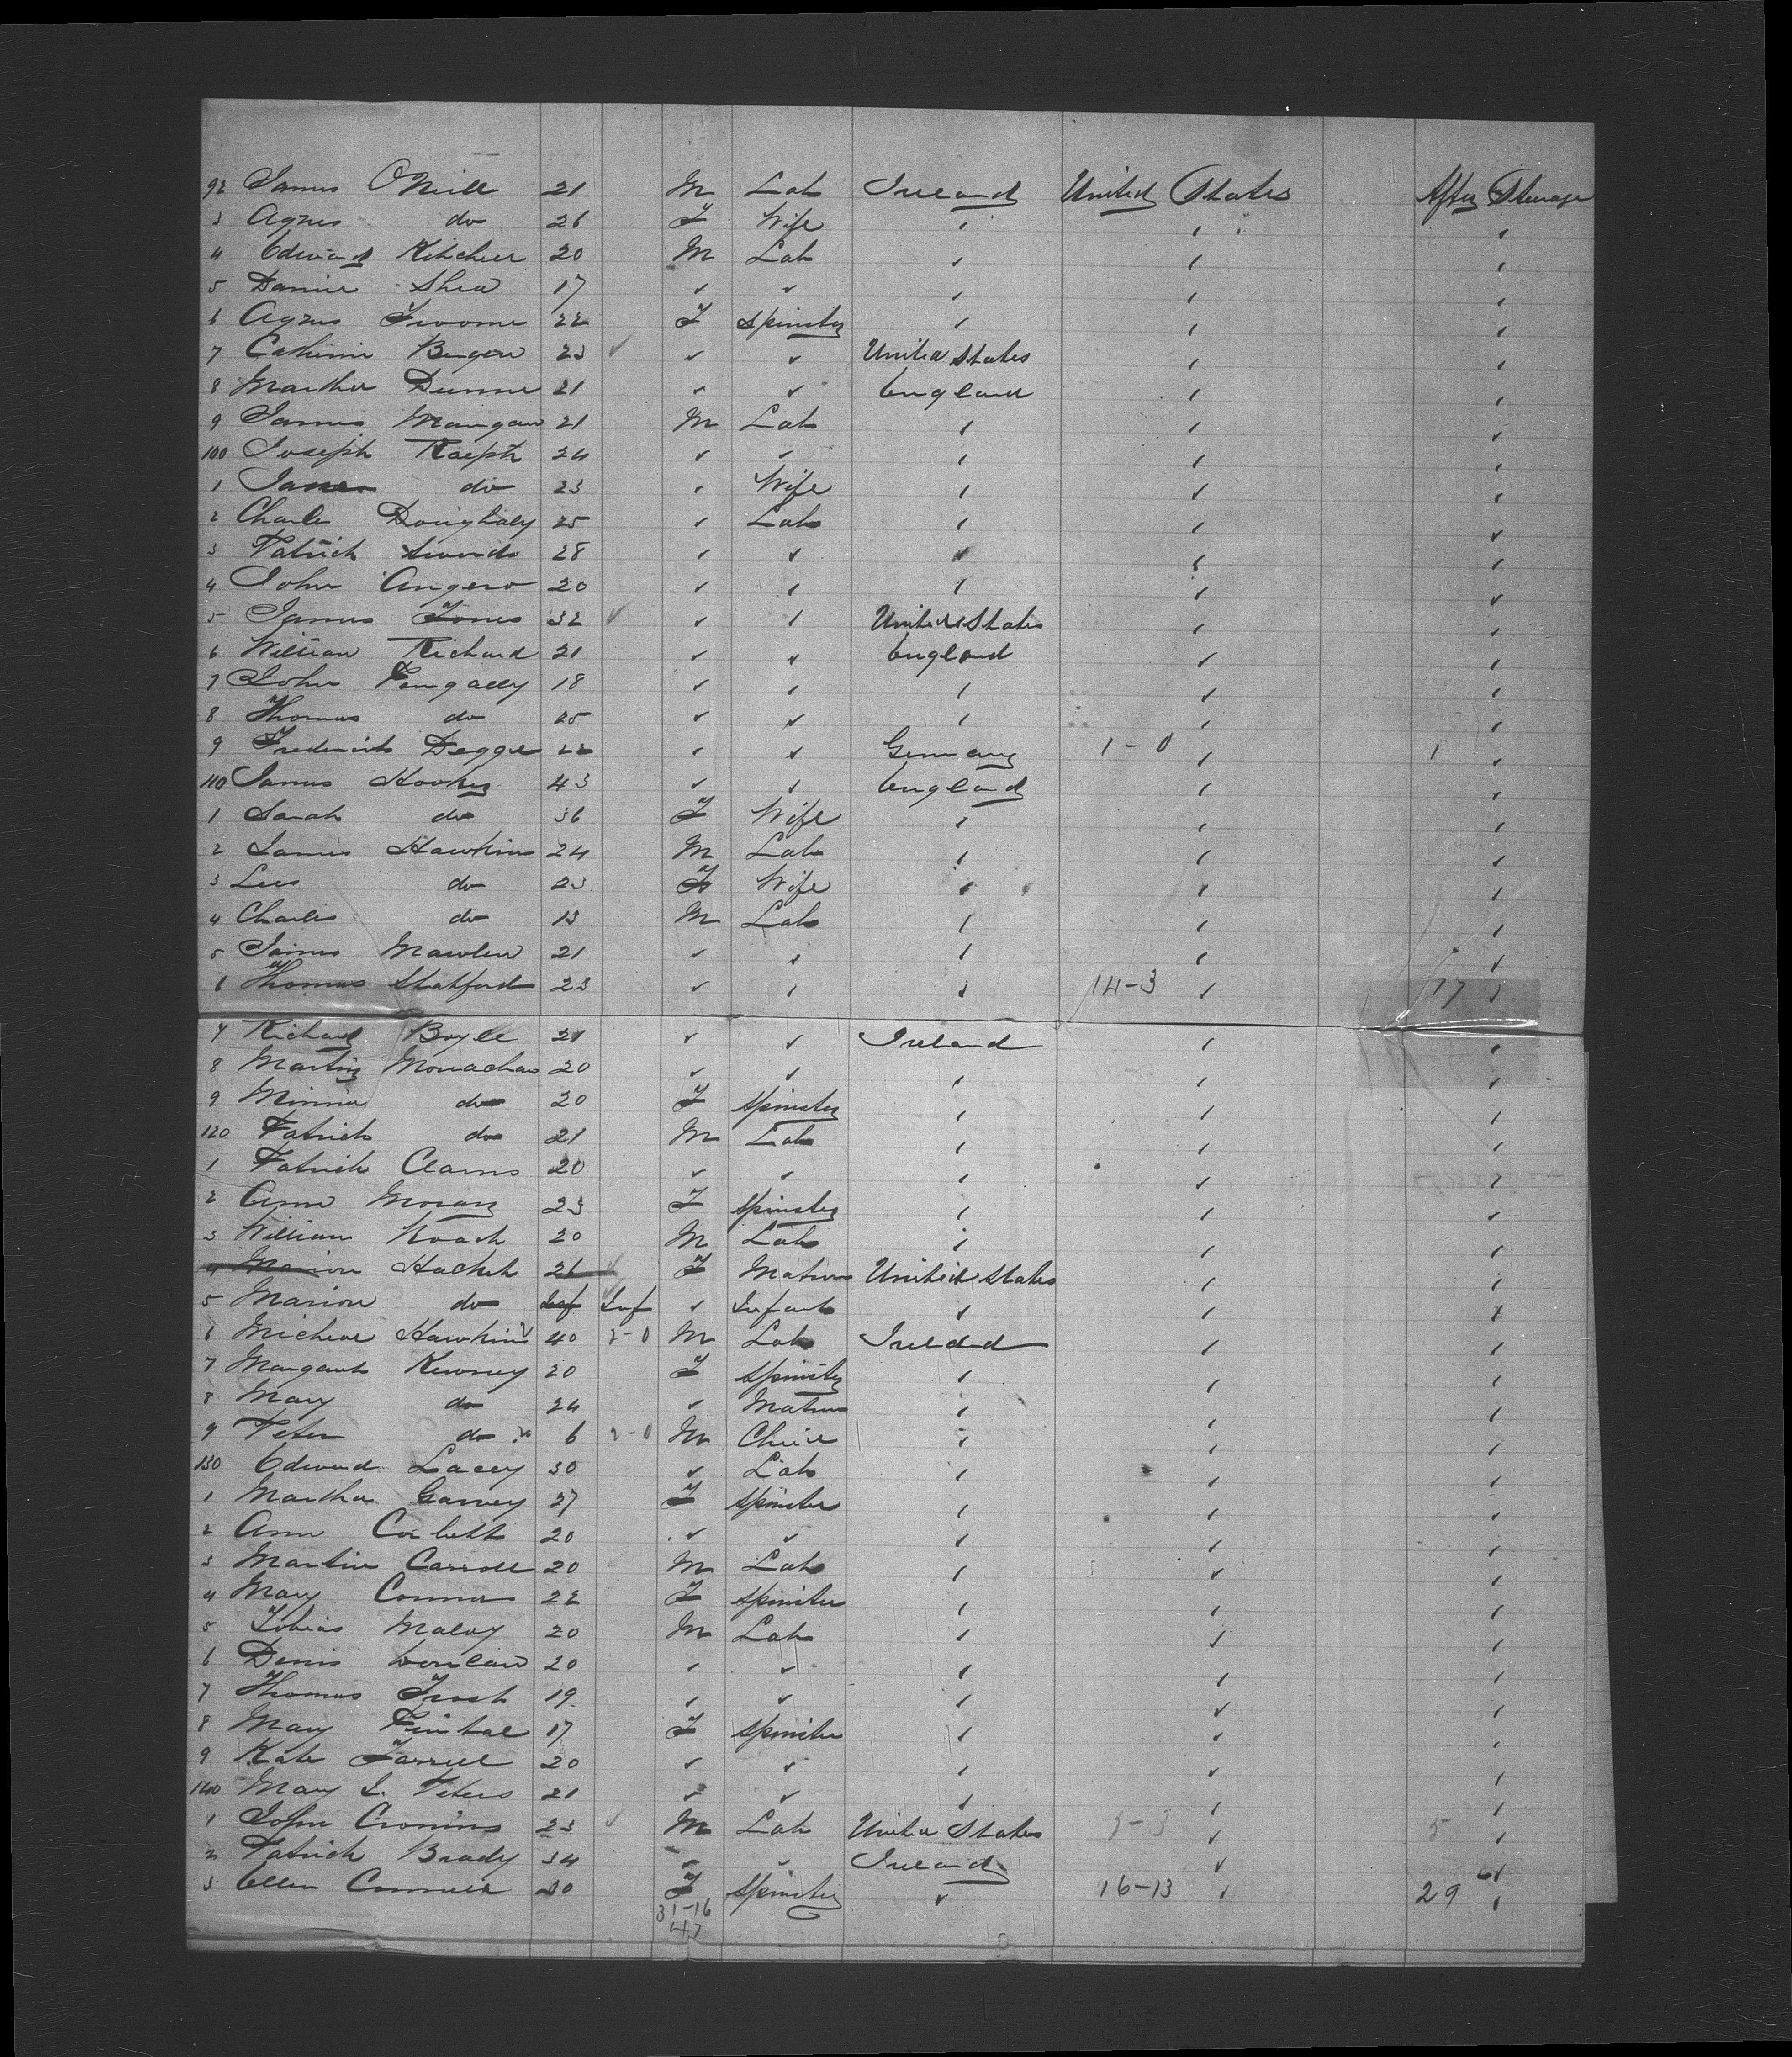 92 James ONeill 21 M Lab Ireland United States After Steerage
3 Agnes do 26 F Wife
4 Edward Kitcheer 20 M Lab
5 Daniel Shea 17 ✓ ✓
6 Agnes Froome 22 F Spinster
7 Catherine 23 ✓ ✓ ✓ United States
8 Martha Dunne 21 ✓ ✓ England
9 James Mangan 21 M Lab
100 Joseph Ralph 24 ✓
1 James do 23 Wife
2 Charles Doughaly 25 Lab
3 Patrick 28
4 John Angero 20
5 James Jones 32 ✓ United States
6 William Richard 21 England
7 John Pengally 18
8 Thomas do 25
9 Frederick Degge 22 Germany 1-0 1
110 James Hooker 43 England
1 Sarah do 36 F Wife
2 James Hawkins 24 M Lab
3 do 23 F Wife
4 Charles do 13 M Lab
5 James Mawlen 21
6 Thomas Statford 23 14-3 17
7 Richard Boyle 21 Ireland
8 Martin Monachan 20
9 Minnie do 20 F Spinster
120 Patrick do 21 M Lab
1 Patrick Clams 20
2 Ann Moran 23 F Spinster
3 William Roach 20 M Lab
4 Marion Hacket 21 F Matron United States
5 Marion do Inf Inf ✓ Infant
6 Micheal Hawkins 40 2-0 M Lab Ireland
7 Margaret Kewney 20 F Spinster
8 Mary do 24 ✓ Matron
9 Peter do 6 2-0 M Child
130 Edward Lacey 30 ✓ Lab
1 Martha Garvey 27 F Spinster
2 Ann Corbett 20 ✓ ✓
3 Martin Carroll 20 M Lab
4 Mary Connor 22 F Spinster
5 Tobias Maloy 20 M Lab
6 Denis 20
7 Thomas Frost 19
8 Mary 17 F Spinster
9 Kate Farrell 20 ✓ ✓
140 Mary J. Peters 21 ✓ ✓
1 John Cronins 23 ✓ M Lab United States 5
2 Patrick Brady 34 Ireland
3 Ellen Connell 30 F Spinster ✓ 16-13 29
31-16
47